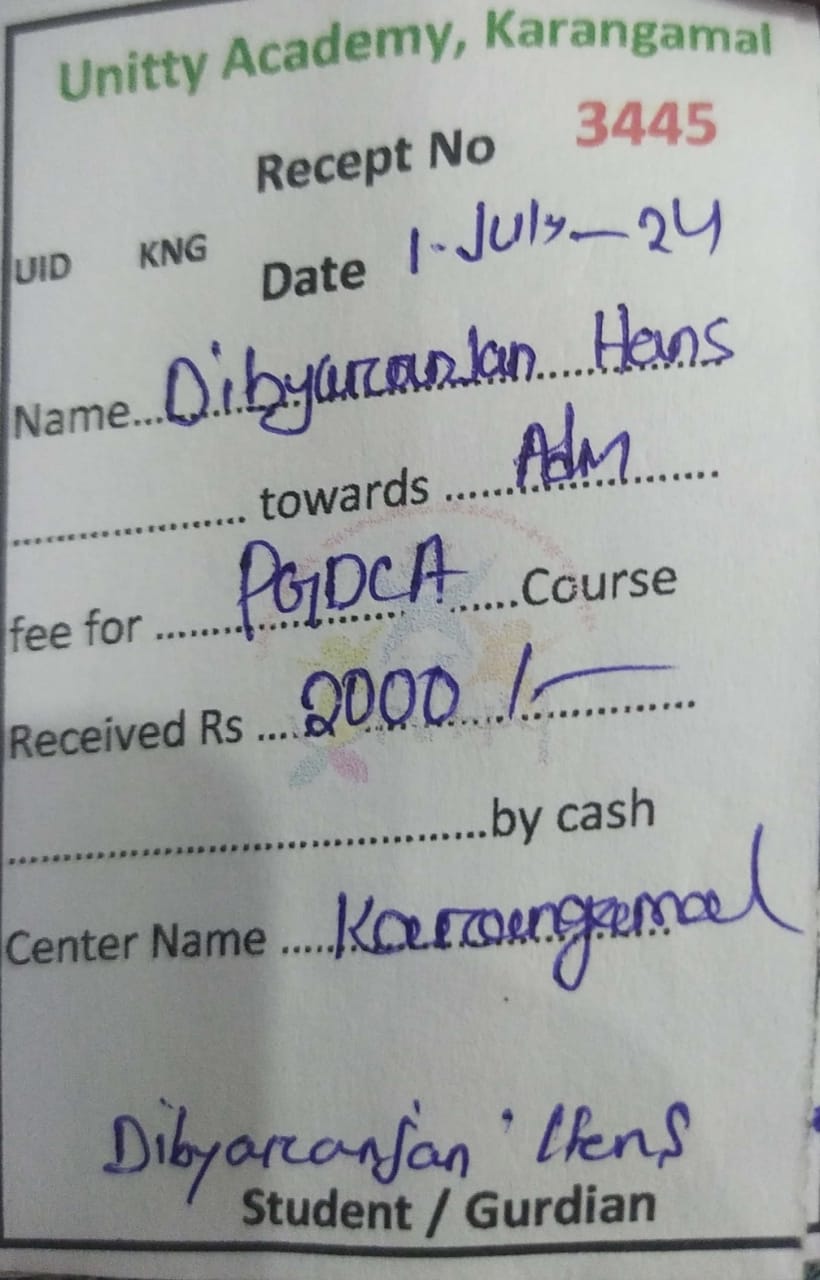 Unitty Academy, Karangamal
Recept No 3445
UID KNG Date 1-July-24
Name...Dibyaranjan Hans
.................... towards ....Adm........
fee for ....PGDCA......Course
Received Rs ....2000/-............
........................................by cash
Center Name .....Karangamal
Dibyaranjan Hens
Student / Gurdian